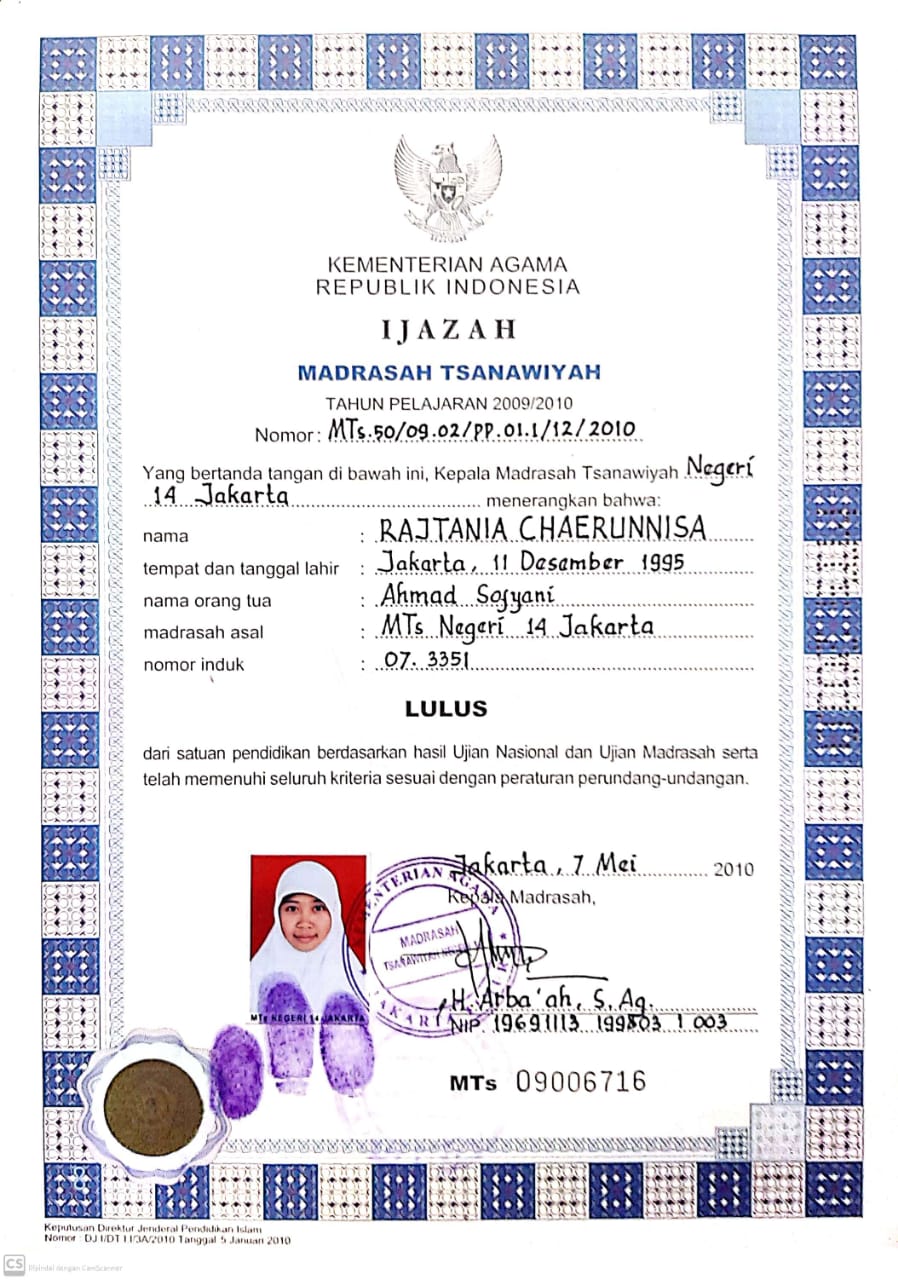 KEMENTERIAN AGAMA
REPUBLIK INDONESIA
IJAZAH
MADRASAH TSANAWIYAH
TAHUN PELAJARAN 2009/2010
Nomor : MTs.50/09.02/PP.01.1/12/2010
Yang bertanda tangan di bawah ini, Kepala Madrasah Tsanawiyah Negeri
14 Jakarta menerangkan bahwa:
nama : RAJTANIA CHAERUNNISA
tempat dan tanggal lahir : Jakarta, 11 Desember 1995
nama orang tua : Ahmad Sofyani
madrasah asal : MTs Negeri 14 Jakarta
nomor induk : 07. 3351
LULUS
dari satuan pendidikan berdasarkan hasil Ujian Nasional dan Ujian Madrasah serta
telah memenuhi seluruh kriteria sesuai dengan peraturan perundang-undangan.
Jakarta, 7 Mei 2010
Kepala Madrasah,
KEMENTERIAN AGAMA
MADRASAH
TSANAWIYAH
H. Arba'ah, S. Ag.
NIP. 19691113 199803 1 003
MTs NEGERI 14 JAKARTA
MTs 09006716
Keputusan Direktur Jenderal Pendidikan Islam
Tanggal 5 Januari 2010
CS Dipindai dengan CamScanner